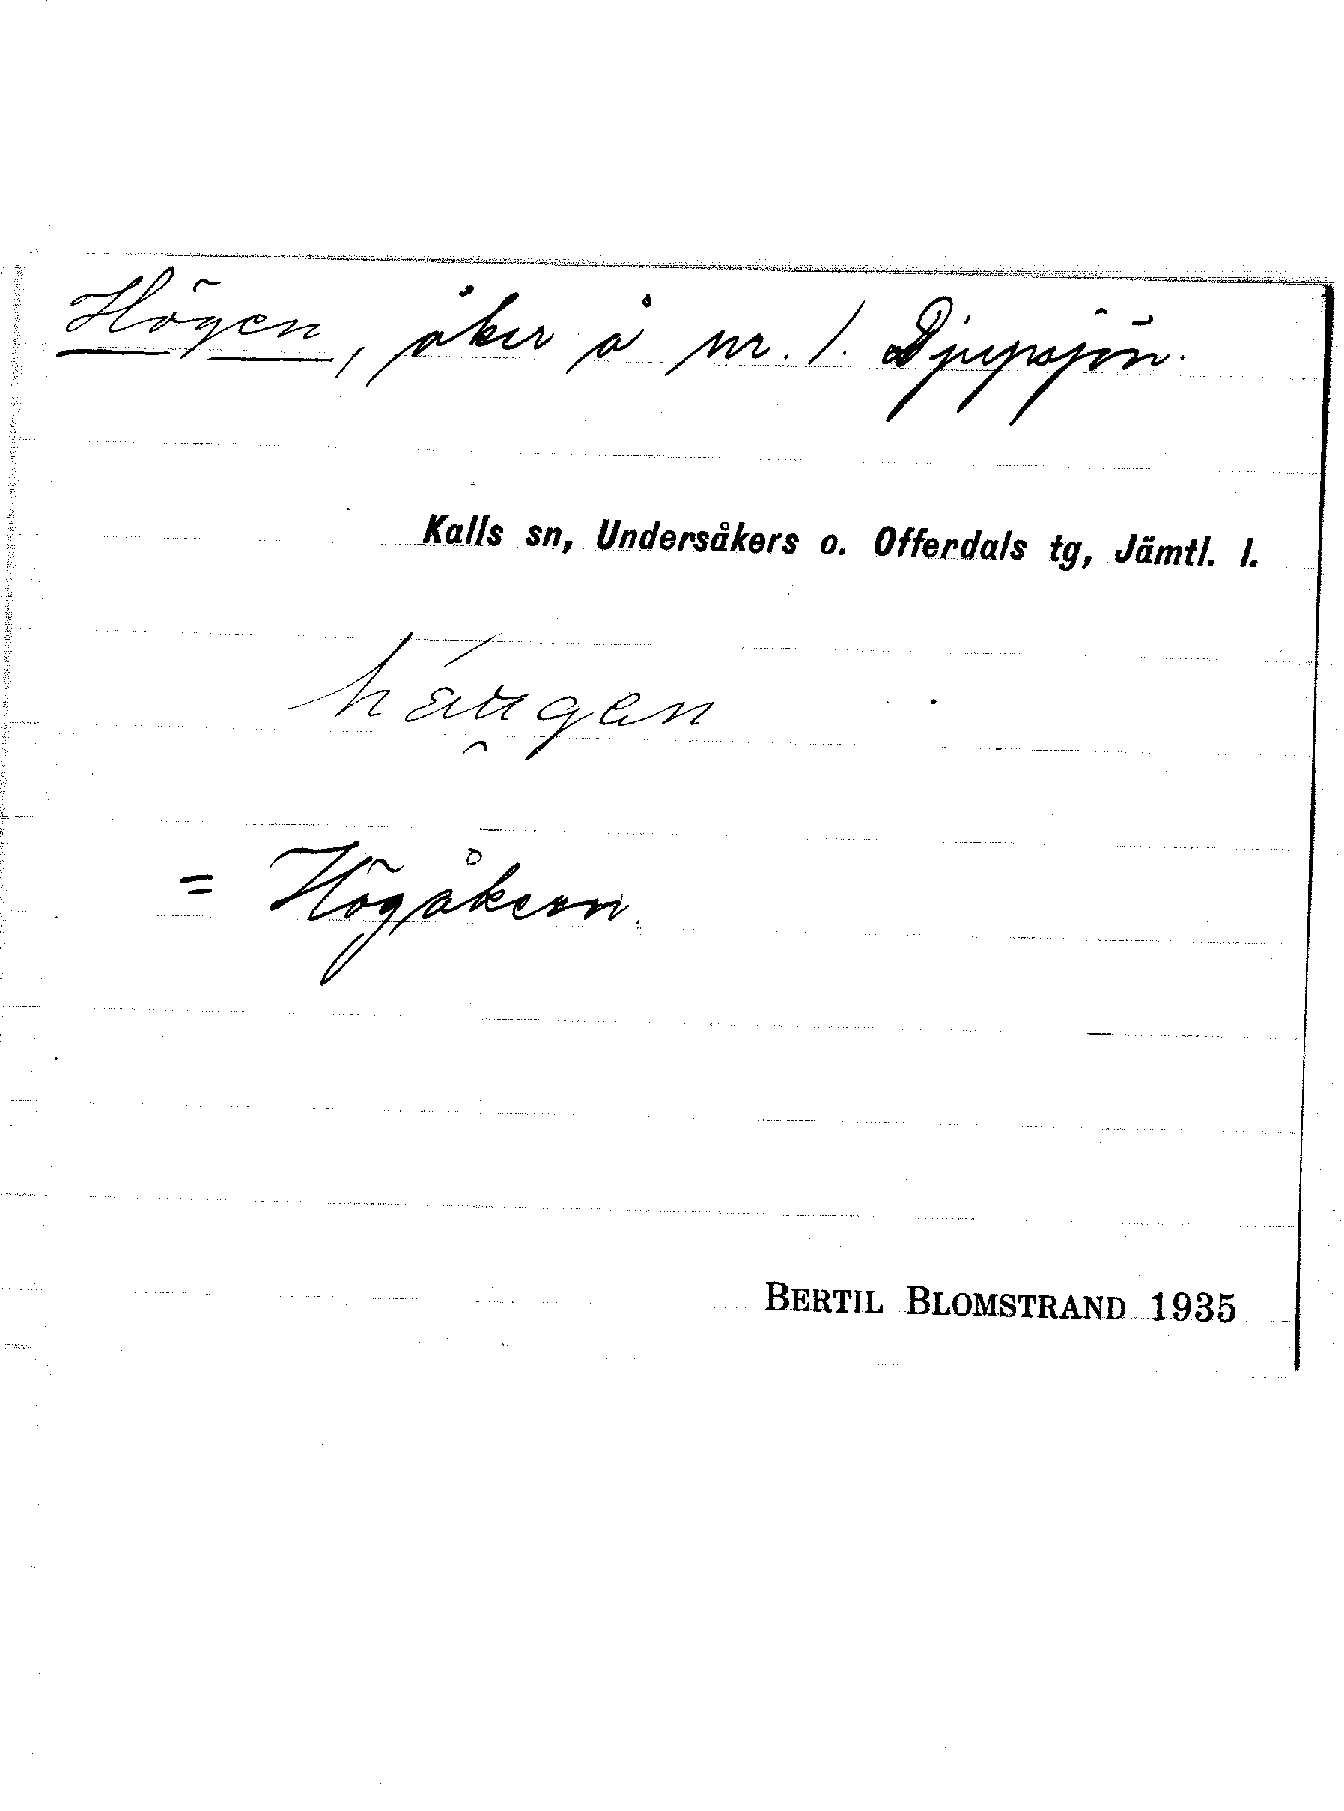 Högen, åker å nr. 1. Djupsjön.
Kalls sn, Undersåkers o. Offerdals tg, Jämtl. l.
há̤u̯gen
= Högåkern.
BERTIL BLOMSTRAND 1935